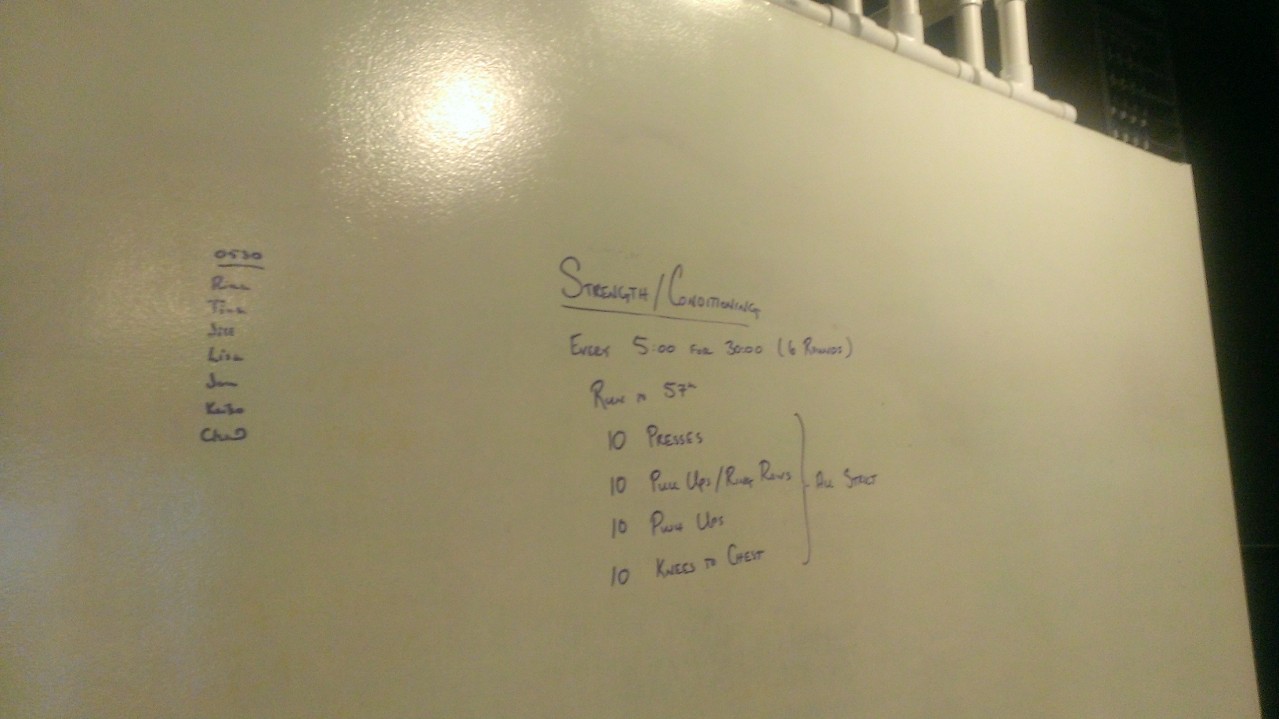 0530
Tina
Lisa
Chad
STRENGTH/CONDITIONING
EVERY 5:00 FOR 30:00 (6 ROUNDS)
RUN TO 57th
10 PRESSES
10 PULL UPS/RING ROWS
10 PUSH UPS
10 KNEES TO CHEST
ALL STRICT